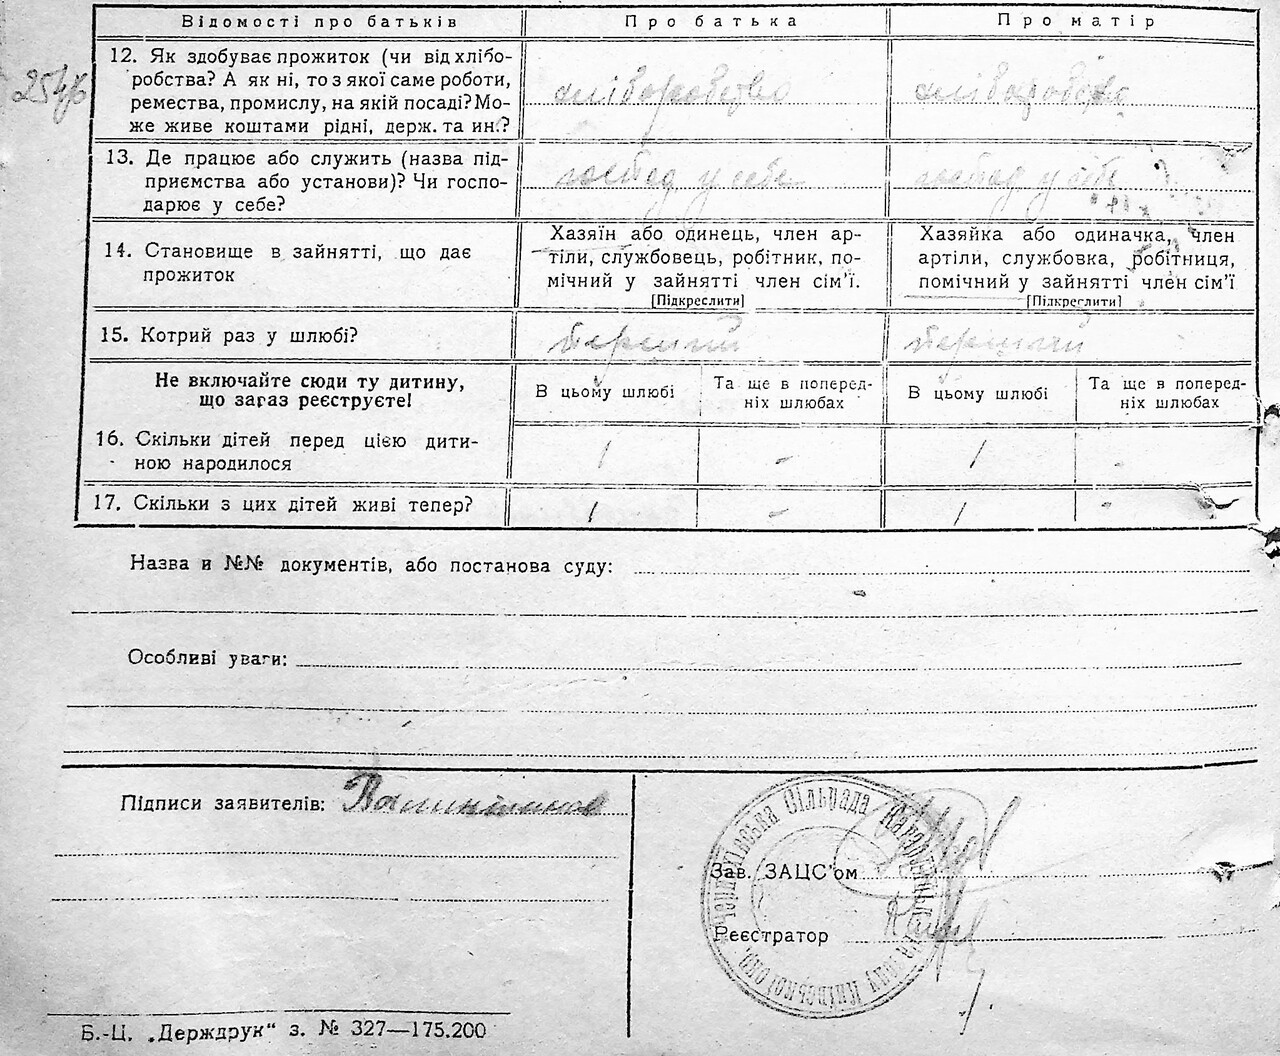 Відомості про батьків Про батька Про матір
254/б
12. Як здобуває прожиток (чи від хлібо-
робства? А як ні, то з якої саме роботи,
ремества, промислу, на якій посаді? Мо-
же живе коштами рідні, держ. та ин.?
хліборобство хліборобство
13. Де працює або служить (назва під-
приємства або установи)? Чи госпо-
дарює у себе?
господ у себе господ у себе
14. Становище в зайнятті, що дає
прожиток
Хазяїн або одинець, член ар-
тіли, службовець, робітник, по-
мічний у зайнятті член сім'ї.
[Підкреслити]
Хазяйка або одиначка, член
артіли, службовка, робітниця,
помічний у зайнятті член сім'ї
[Підкреслити]
15. Котрий раз у шлюбі? Перший Перший
Не включайте сюди ту дитину,
що зараз реєструєте!
В цьому шлюбі
Та ще в поперед-
ніх шлюбах
В цьому шлюбі
Та ще в поперед-
ніх шлюбах
16. Скільки дітей перед цією дити-
ною народилося
1 - 1 -
17. Скільки з цих дітей живі тепер? 1 - 1 -
Назва и №№ документів, або постанова суду:
Особливі уваги:
Підписи заявителів:
Сільрада
Київської
Зав. ЗАЦС'ом
Реєстратор
Б.-Ц. „Держдрук“ з. № 327—175.200